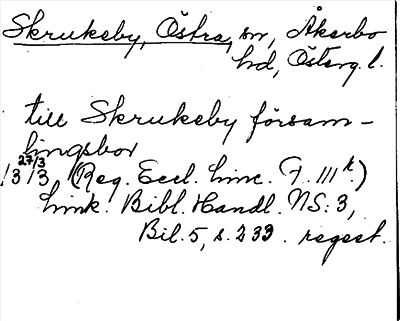 Skrukeby, Östra, sn, Åkerbo
hd, Österg. l.
till Skrukeby försam-
lingsbor
13 27/3 13 (Reg. Eccl. Linc. F. III k.)
Link. Bibl. Handl. NS: 3,
Bil. 5, s. 233. regest.